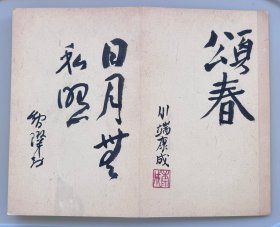 頌春
川端康成
日月無
私照